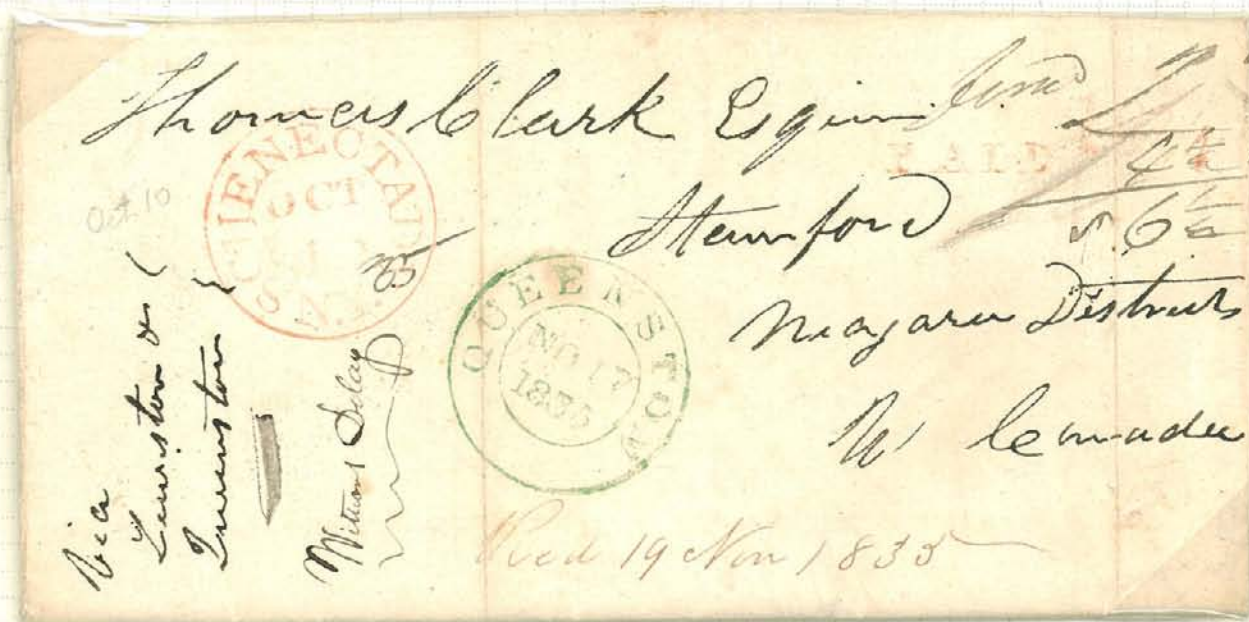 Thomas Clark Esquire
PAID
2
4½
6½
Stamford
Niagara District
U Canada
SCHENECTADY N.Y.
OCT
35
Oct 10
QUEENSTON
NO 17
1835
Via
Lewiston &
Queenston
Without Delay
Recd 19 Nov 1835